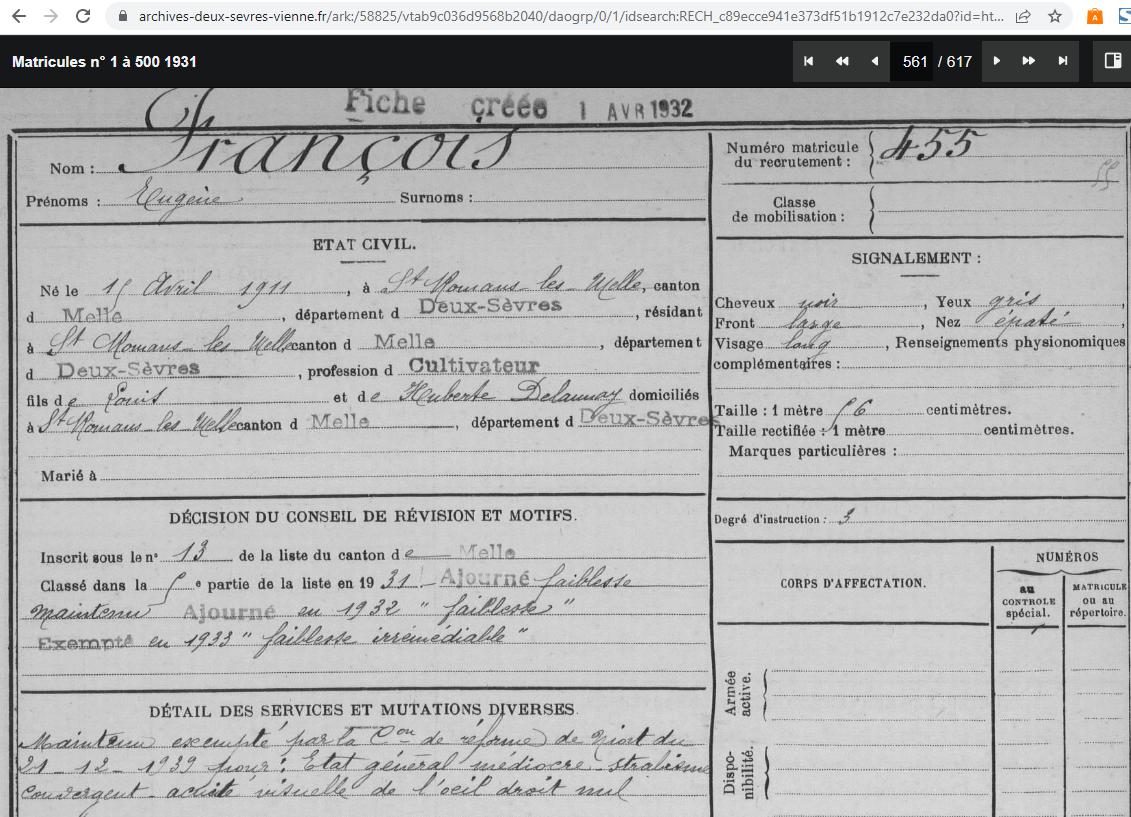 archives-deux-sevres-vienne.fr/ark:/58825/vtab9c036d9568b2040/daogrp/0/1/idsearch:RECH_c89ecce941e373df51b1912c7e232da0?id=ht...
Matricules n° 1 à 500 1931
561 / 617
Fiche créée 1 AVR 1932
Nom : François
Prénoms : Eugène Surnoms :
ETAT CIVIL.
Né le 15 Avril 1911, à St Romans les Melle, canton
d Melle, département d Deux-Sèvres, résidant
à St Romans les Melle canton d Melle, département
d Deux-Sèvres, profession d Cultivateur
fils de Louis et de Huberte Delaunay domiciliés
à St Romans les Melle canton d Melle, département d Deux-Sèvres
Marié à
DÉCISION DU CONSEIL DE RÉVISION ET MOTIFS.
Inscrit sous le n° 13 de la liste du canton de Melle
Classé dans la 5e partie de la liste en 1931 Ajourné faiblesse
maintenu Ajourné en 1932 " faiblesse "
Exempté en 1933 " faiblesse irremédiable "
DÉTAIL DES SERVICES ET MUTATIONS DIVERSES.
Maintenu exempté par la Con de réforme de Niort du
21-12-1939 pour : Etat général médiocre - strabisme
convergent - acuité visuelle de l'oeil droit nul
Numéro matricule
du recrutement : 455
55
Classe
de mobilisation :
SIGNALEMENT :
Cheveux noir, Yeux gris,
Front large, Nez épaté,
Visage long, Renseignements physionomiques
complémentaires :
Taille : 1 mètre 56 centimètres.
Taille rectifiée : 1 mètre centimètres.
Marques particulières :
Degré d'instruction : 3
CORPS D'AFFECTATION.
NUMÉROS
au
CONTROLE
spécial.
MATRICULE
ou au
répertoire.
Armée
active.
Dispo-
nibilité.